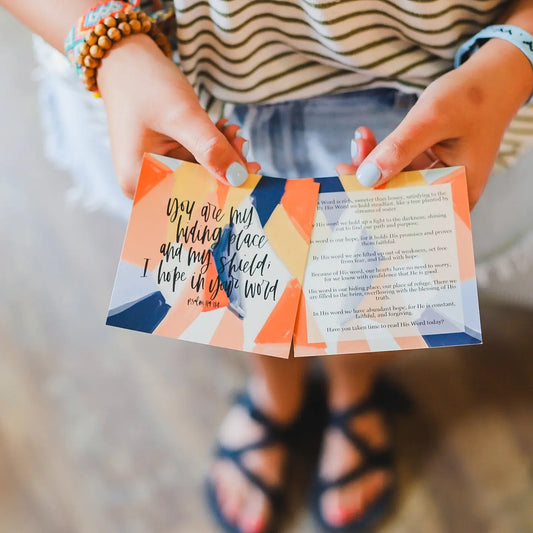 You are my
hiding place
and my shield;
I hope in your word
psalm 119:114
Word is rich, sweeter than honey, satisfying to the
His Word we hold steadfast, like a tree planted by
streams of water.
Word we hold up a light to the darkness, shining
out to find our path and purpose.
Word is our hope, for it holds His promises and proves
them faithful.
By His word we are lifted up out of weakness, set free
from fear, and filled with hope.
Because of His word, our hearts have no need to worry,
for we know with confidence that He is good.
His word is our hiding place, our place of refuge. There we
are filled to the brim, overflowing with the blessing of His
truth.
In His word we have abundant hope, for He is constant,
faithful, and forgiving.
Have you taken time to read His Word today?